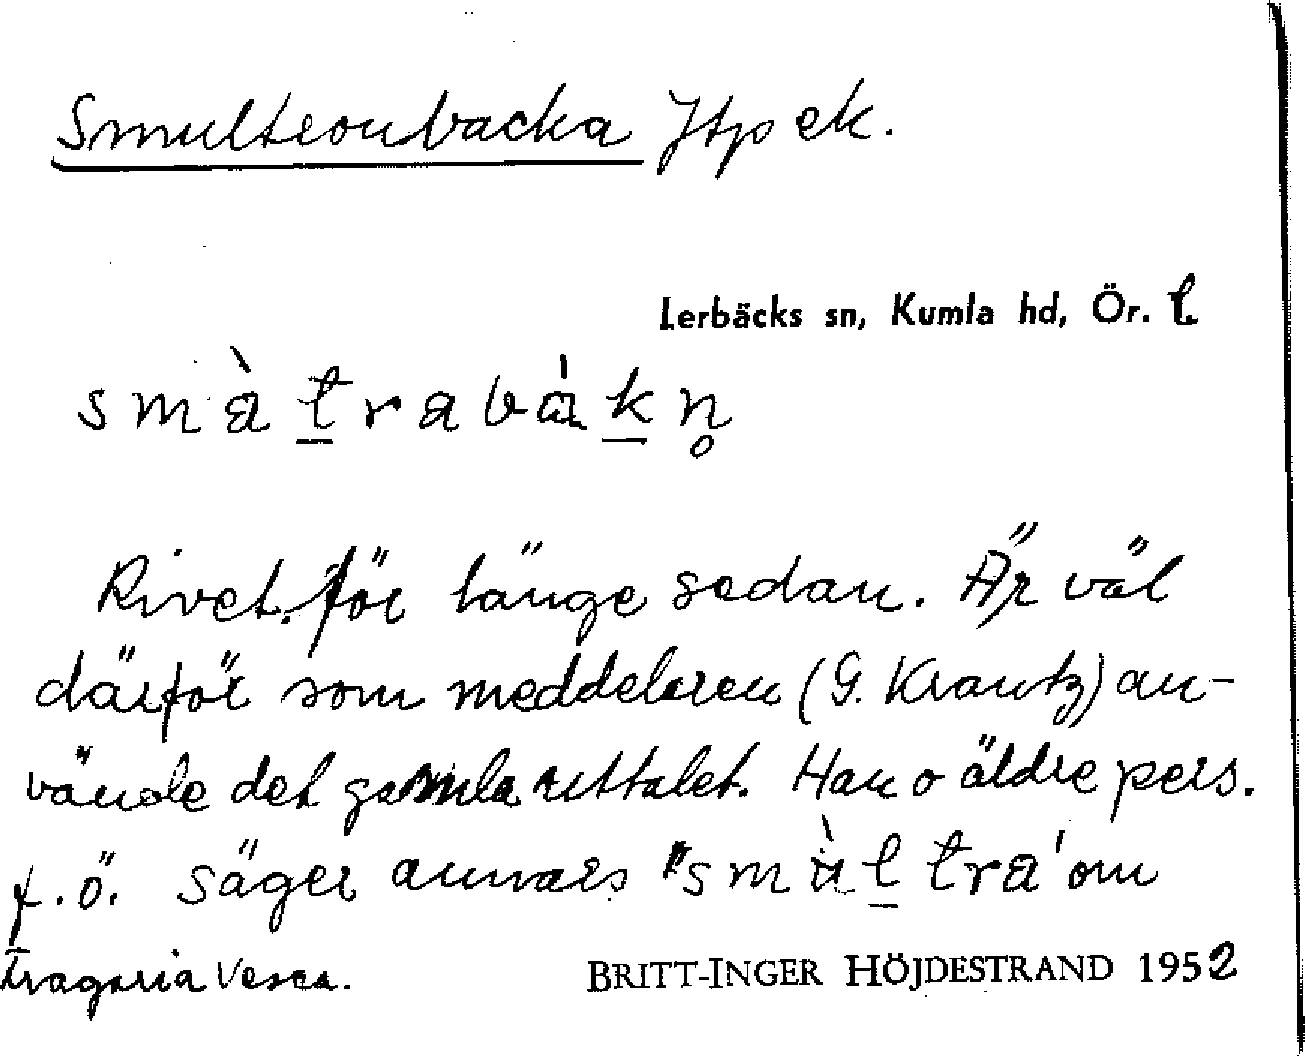 Smultronbacka Jtp ek.
Lerbäcks sn, Kumla hd, Ör. l
smàtrabákn̥
Rivet för länge sedan. Är väl
därför som meddelaren (G. Krantz) an-
vände det gamla uttalet. Han o äldre pers.
f.ö. säger annars "smùltra" om
Fragaria Vesca.
BRITT-INGER HÖJDESTRAND 1952